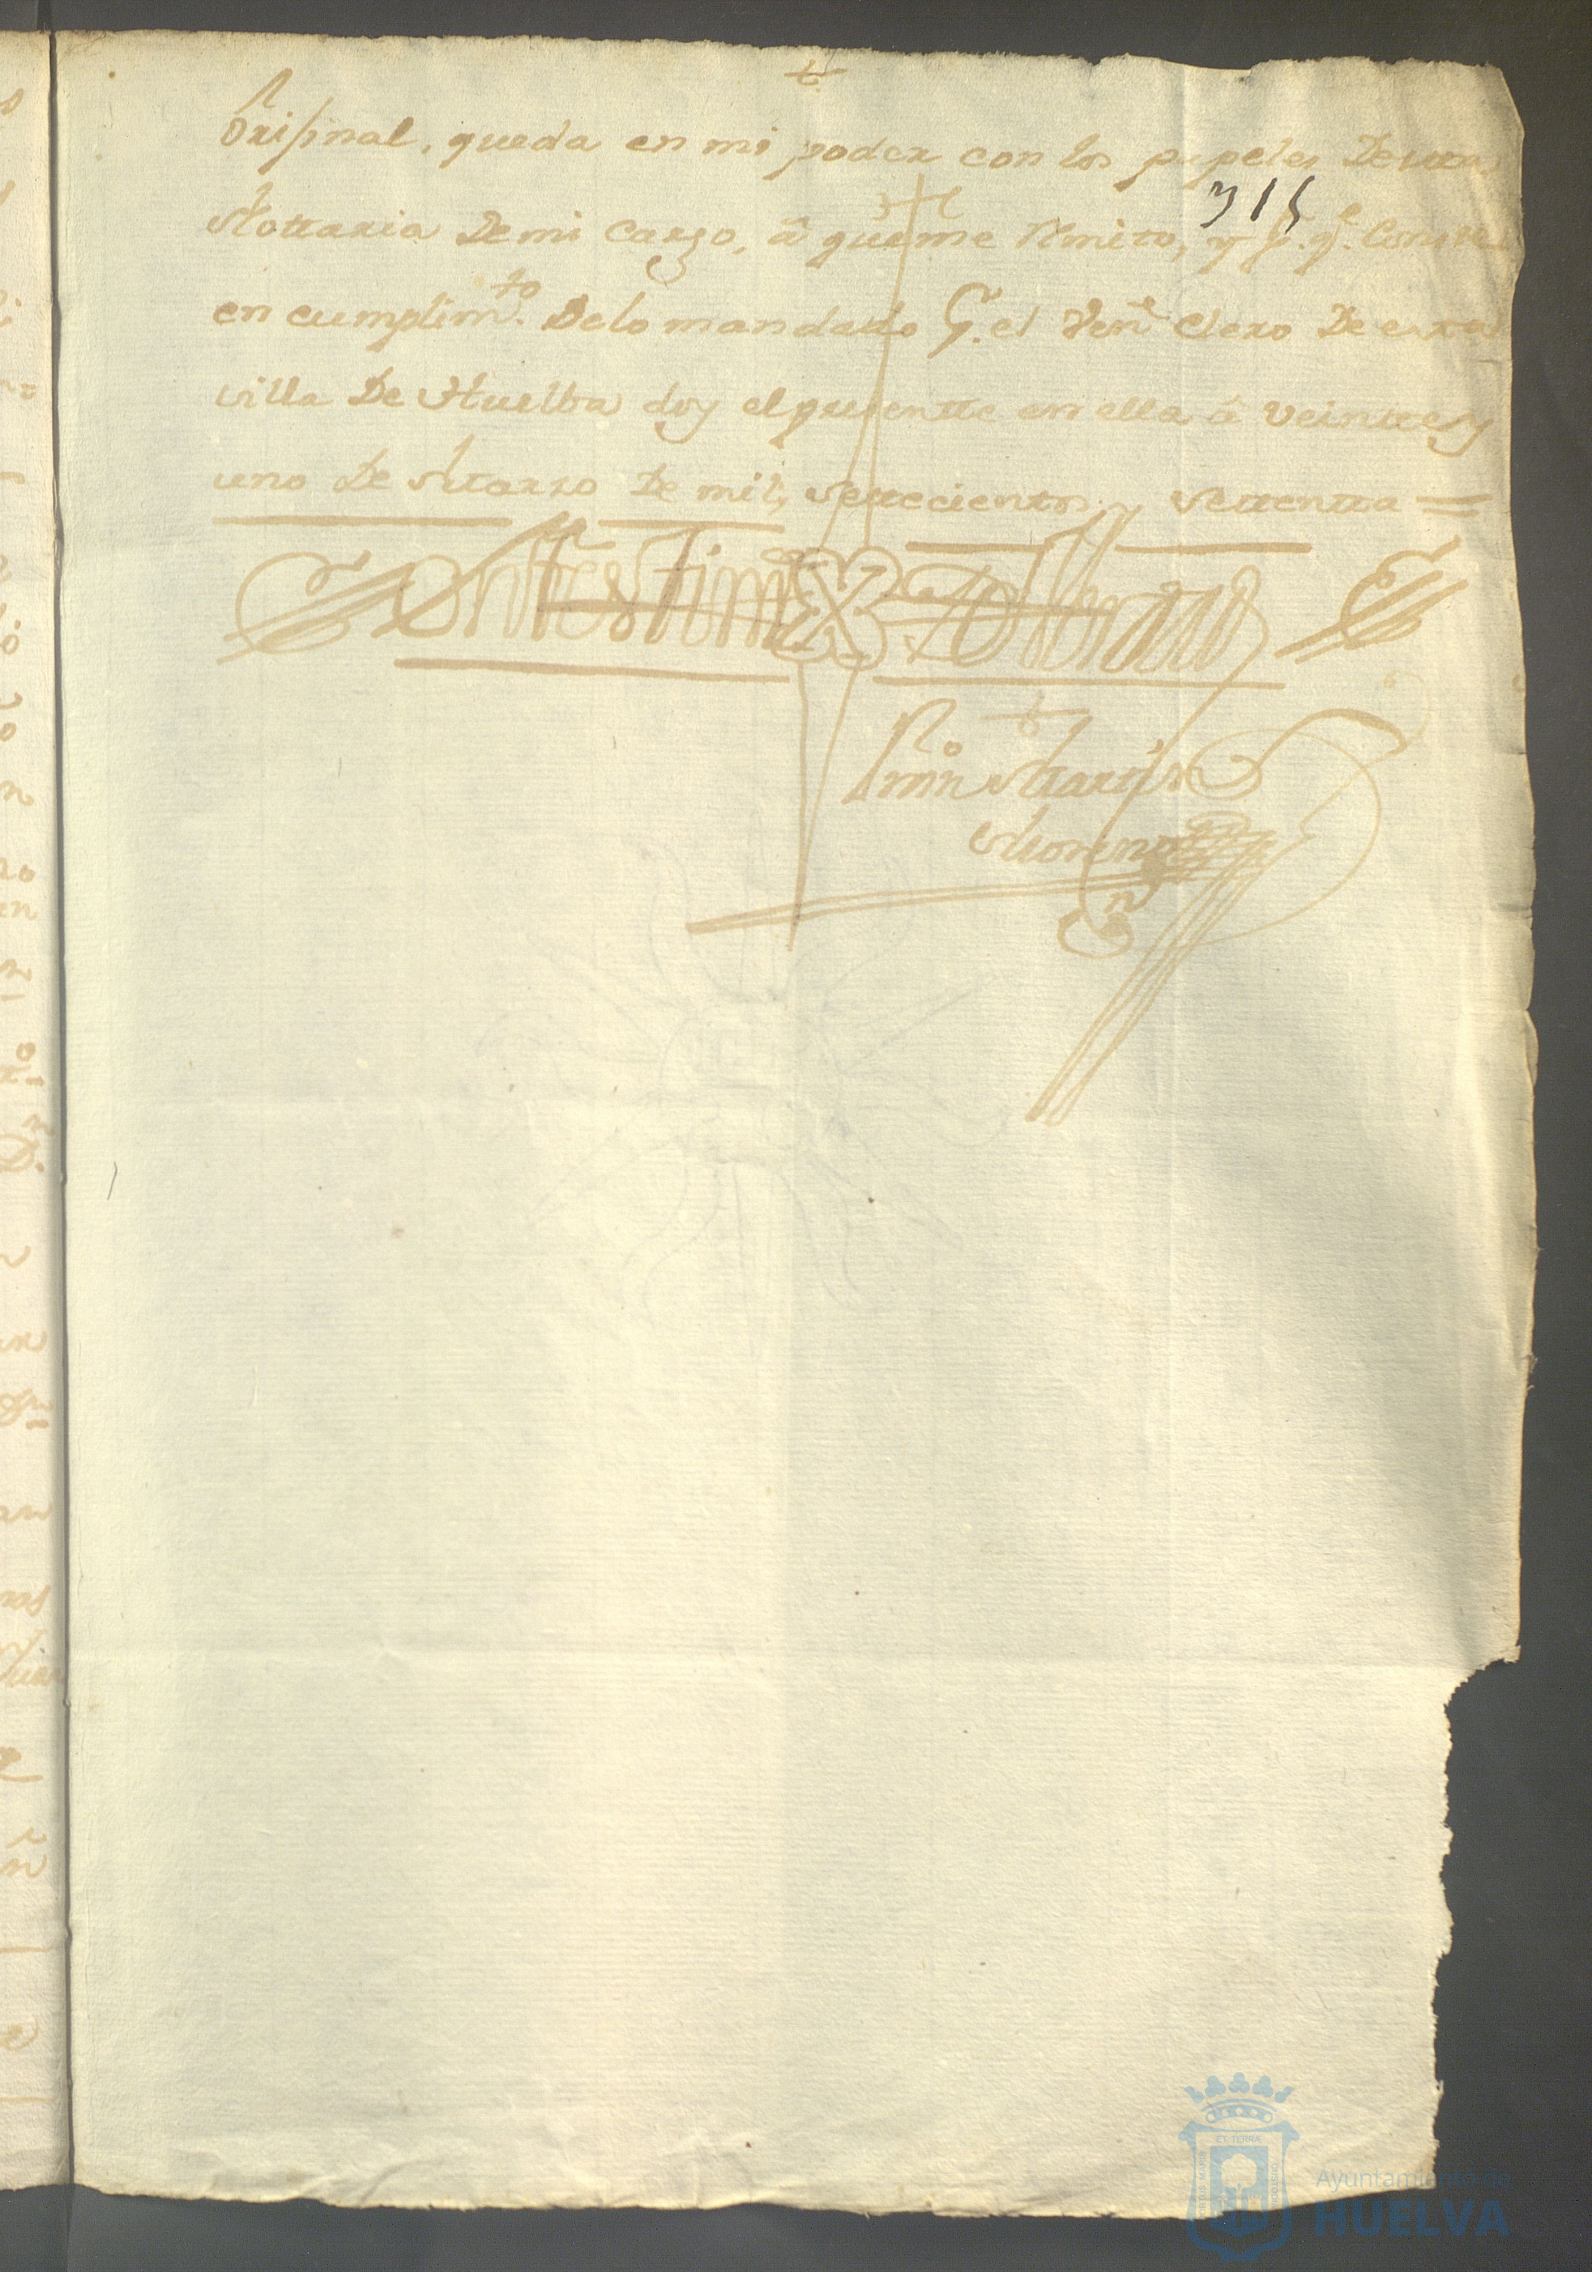 Original, queda en mi poder con los papeles De esta
315
Nottaria De mi Cargo, â que me Rmito, y p.ª q.e Conste
en cumplim.to De lo mandado P. el Ven.e Clero De esta
villa De Huelba doy el presentte en ella â veintte y
uno De Marzo De mil, Settecientos, y Settentta =
En testim.o De Verdad
Martin
Moreno
n.o
ET TERRÆ
Ayuntamiento de
HUELVA